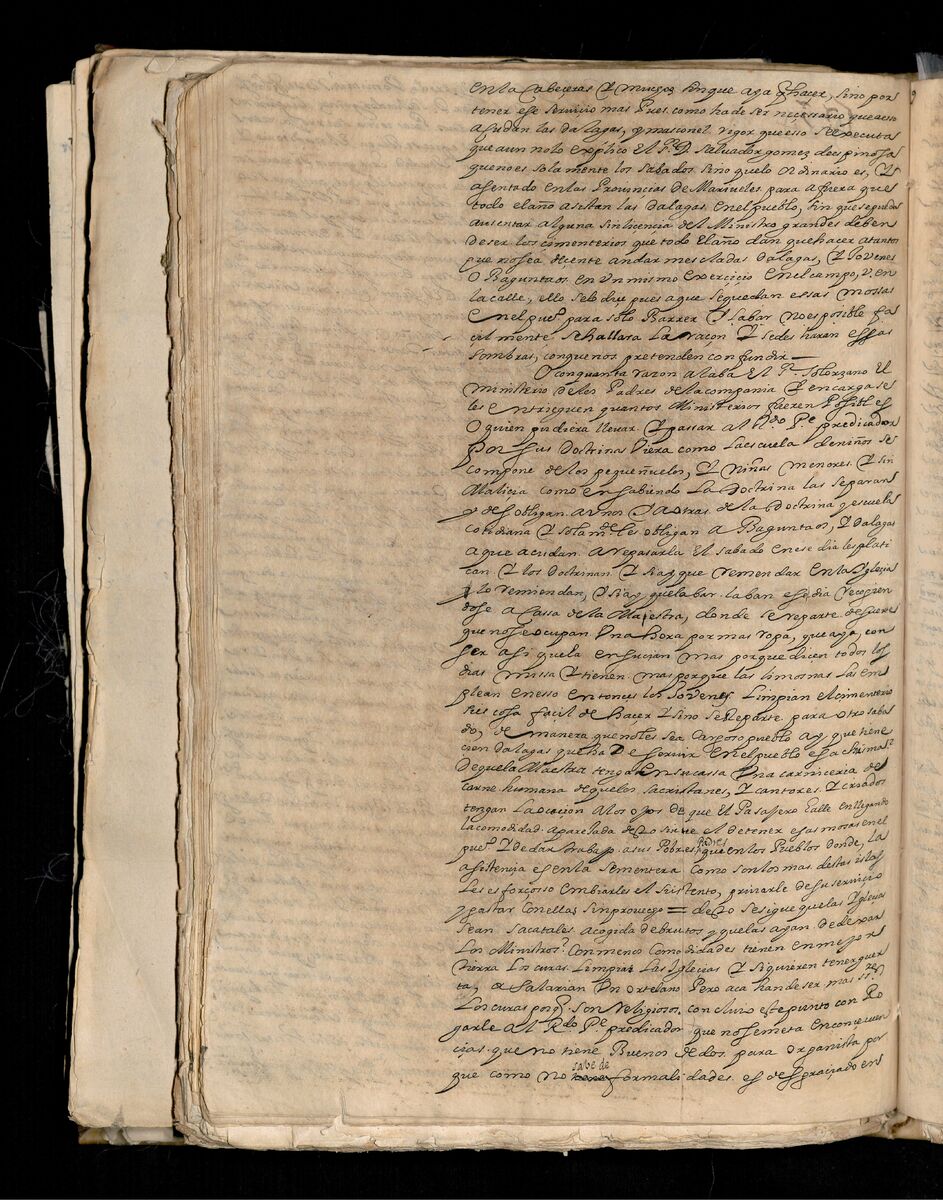 en la Cabeceras Y muchos sin que aya q̃ hacer, sino por
tener ese servicio mas Pues como ha de ser necessario que a esso
acudan las dalagas, y mas con el rigor que esso se executa
que aun no lo explico el Pe. D. Salvador gomez de espinosa
que no es sola mente los sabados sino que lo ordinario es, Y
asentado en las Provincias De Mariveles para afuera que
todo el año asistan las dalagas en el pueblo, sin que se puedan
ausentar alguna sin licencia del Ministro grandes deben
de ser los cimenterios que todo el año dan que hacer a tantos
que no sea decente andar mescladas dalagas, Y Jovenes
O Baguntaos en Un mismo exercicio en el campo, v en
la calle, ello se le dice pues a que se quedan essas mossas
en el pueo para solo Barrer Y labar no es posible fa
cil mente se hallara La raçon Y se des haran essas
sombras, con que nos pretenden confundir
O con quanta razon alaba El Pe. solorzano El
ministerio de los Padres de la compania Y encarga se
les entrieguen quantos Ministerios fueren Possibles
O quien pudiera llevar Y passar al Rdo Pe predicador
Por sus Doctrinas Viera como La escuela de niños se
compone de los pequeñuelos, Y Niñas menores Y sin
Malicia como en sabiendo La Doctrina las separan
y desobligan a unos Y a otras de la Doctrina y escuela
cotidiana Y sola mte les obligan a Baguntaos, Y dalagas
a que acudan a repasarla El sabado en ese dia les plati
can Y los doctrinan Y si ay que remendar En la Yglesia
lo remiendan, Y si ay que labar laban ese dia recogien
dose a cassa de la Maestra, donde se reparte de suerte
que no se ocupan Una hora por mas ropa, que aya, con
ser asi que la ensucian mas porque dicen todos los
dias missa Y tienen mas porque las limosnas las em
plean en esso entonces los Jovenes Limpian el cimenterio
si es cosa facil de hacer Y sino se Reparte para otro saba
do, de manera que no les sea Engorroso pueblo ay que tiene
cien dalagas que ha De servir en el pueblo essa chusma?
De que la Maestra tenga En su cassa Una carniceria de
carne humana de que los sacristanes, Y cantores Y criados
tengan La ocacion a los ojos de que El Passajero halle en llegando
la comodidad aparejada de esto sirve el detener esas mosas en el
pueo Y de dar trabajo a sus Pobres Padres que en los Pueblos donde, la
asistencia es en la sementera como son los mas destas islas
Les es forçosso embiarles el sustento, privarle de su servicio
y gastar con ellas sin provecho = de esto se sigue que las Yglesias
sean sacatales acogida de brutos y que las ayan de dexar
Los Ministros? Con menos Comodidades tienen en mejor
tierra Los curas Limpias Las Yglesias Y si quieren tener guer
ta, a salarian Un ortelano Pero aca han de ser mas sres
Los curas porq̃ son religiosos, concluio este punto con Ro
garle al Rdo Pe predicador que no se meta en consecuen
cias que no tiene Buenos dedos para organista por
que como no sabe de formalidades es desgraciado en